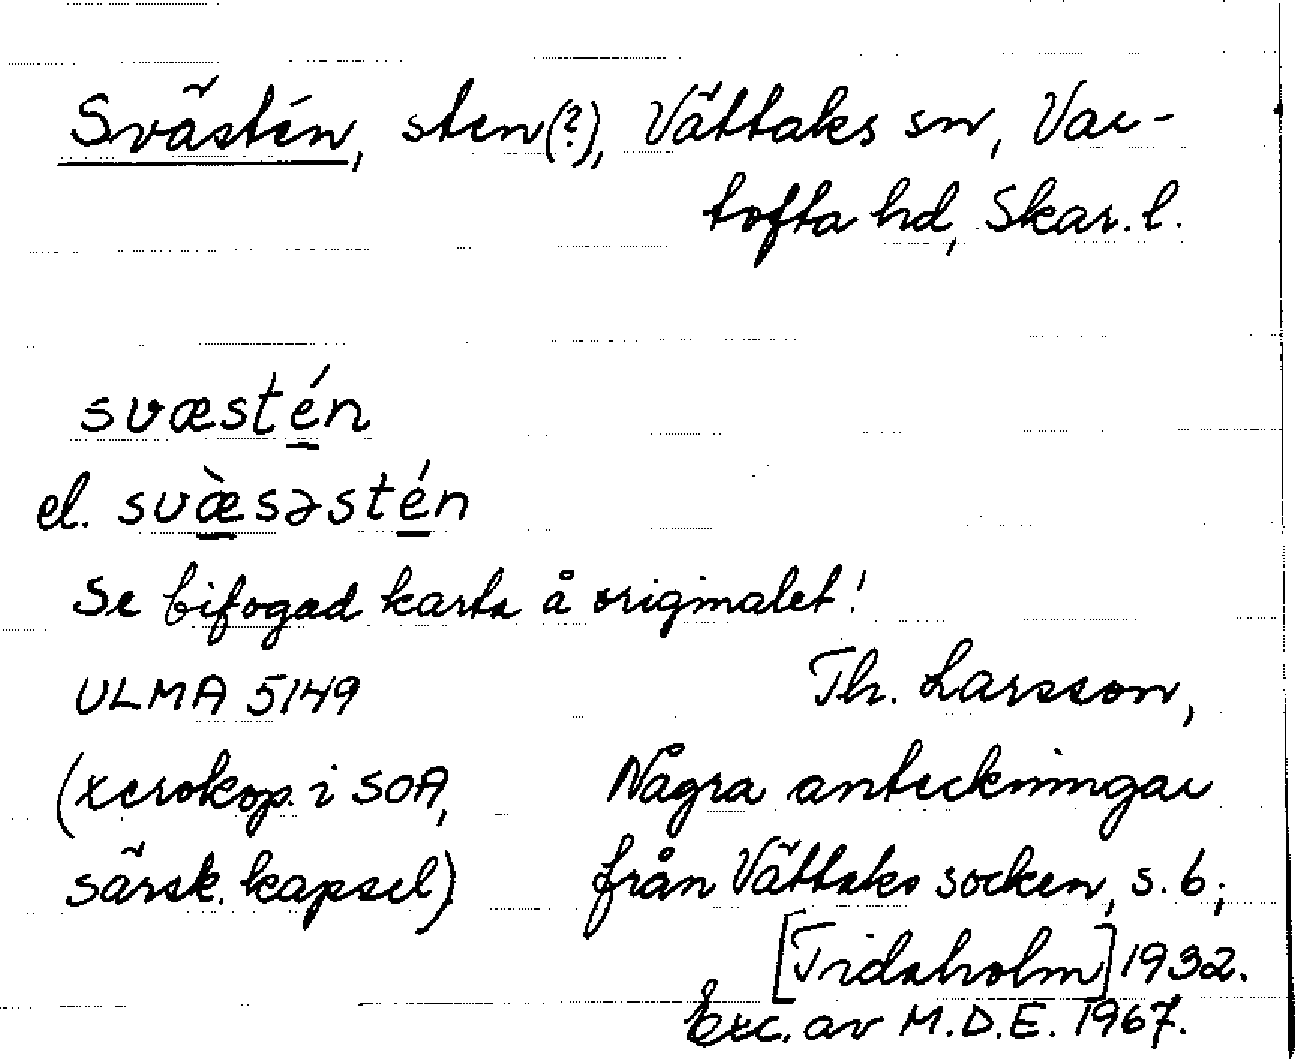 Svästén, sten(?), Vättaks sn, Var-
tofta hd, Skar. l.
svæstén
el. svæ̀səstén
Se bifogad karta å originalet!
ULMA 5149
Th. Larsson,
(xerokop. i SOA,
Några anteckningar
särsk. kapsel)
från Vättaks socken, s. 6;
[Tidaholm] 1932.
Exc. av M.D.E. 1967.